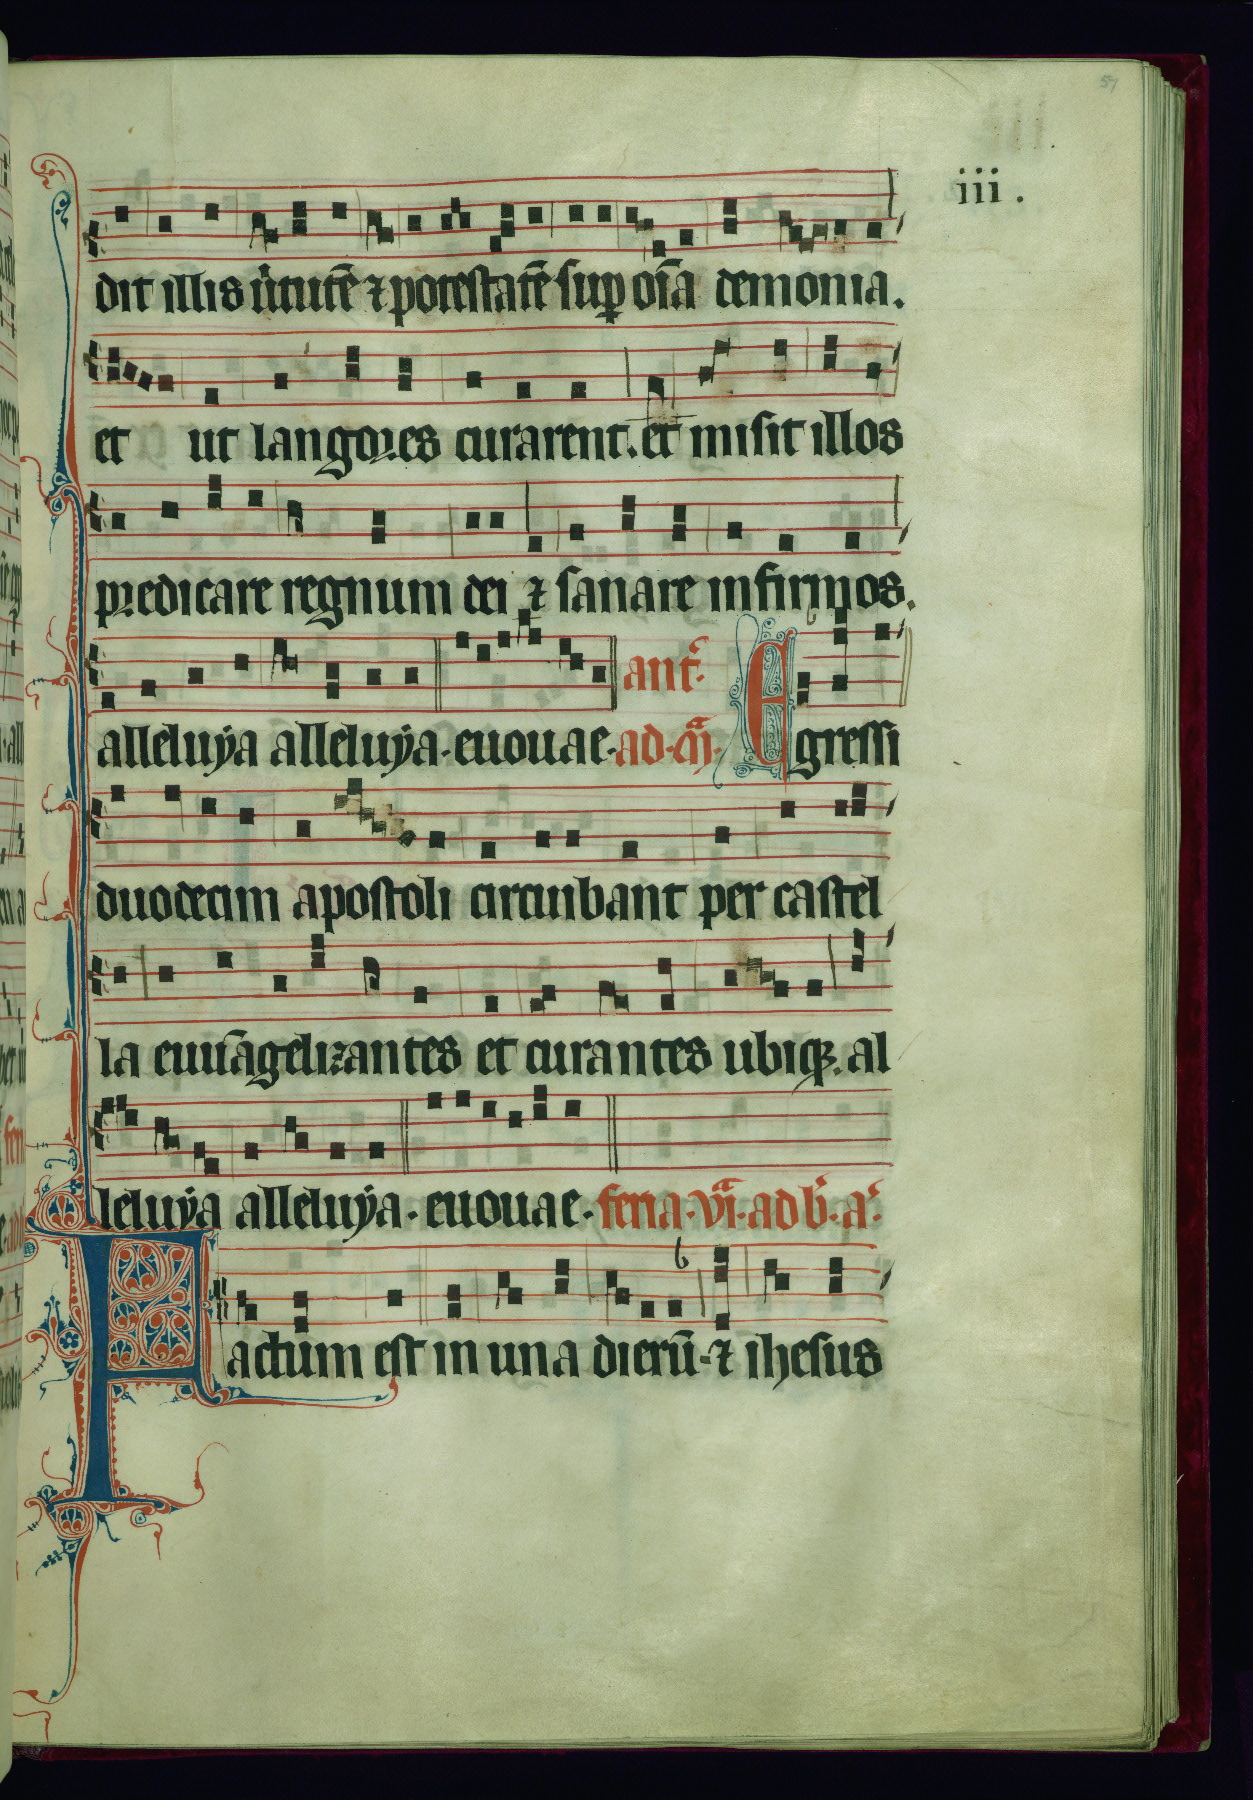 57
iii.
dit illis ữtutē ⁊ potestatē suꝑ oīa demonia.
et ut langores curarent. et misit illos
predicare regnum dei ⁊ sanare infirmos.
ant̾.
alleluẏa alleluẏa. euouae. ad. m̃. Egressi
duodecim apostoli circuibant per castel
la euuāgelizantes et curantes ubiqꝫ. al
leluẏa alleluẏa. euouae. feria. vi.ᵃ ad b̾. a̾.
Factum est in una dierū. ⁊ ihesus